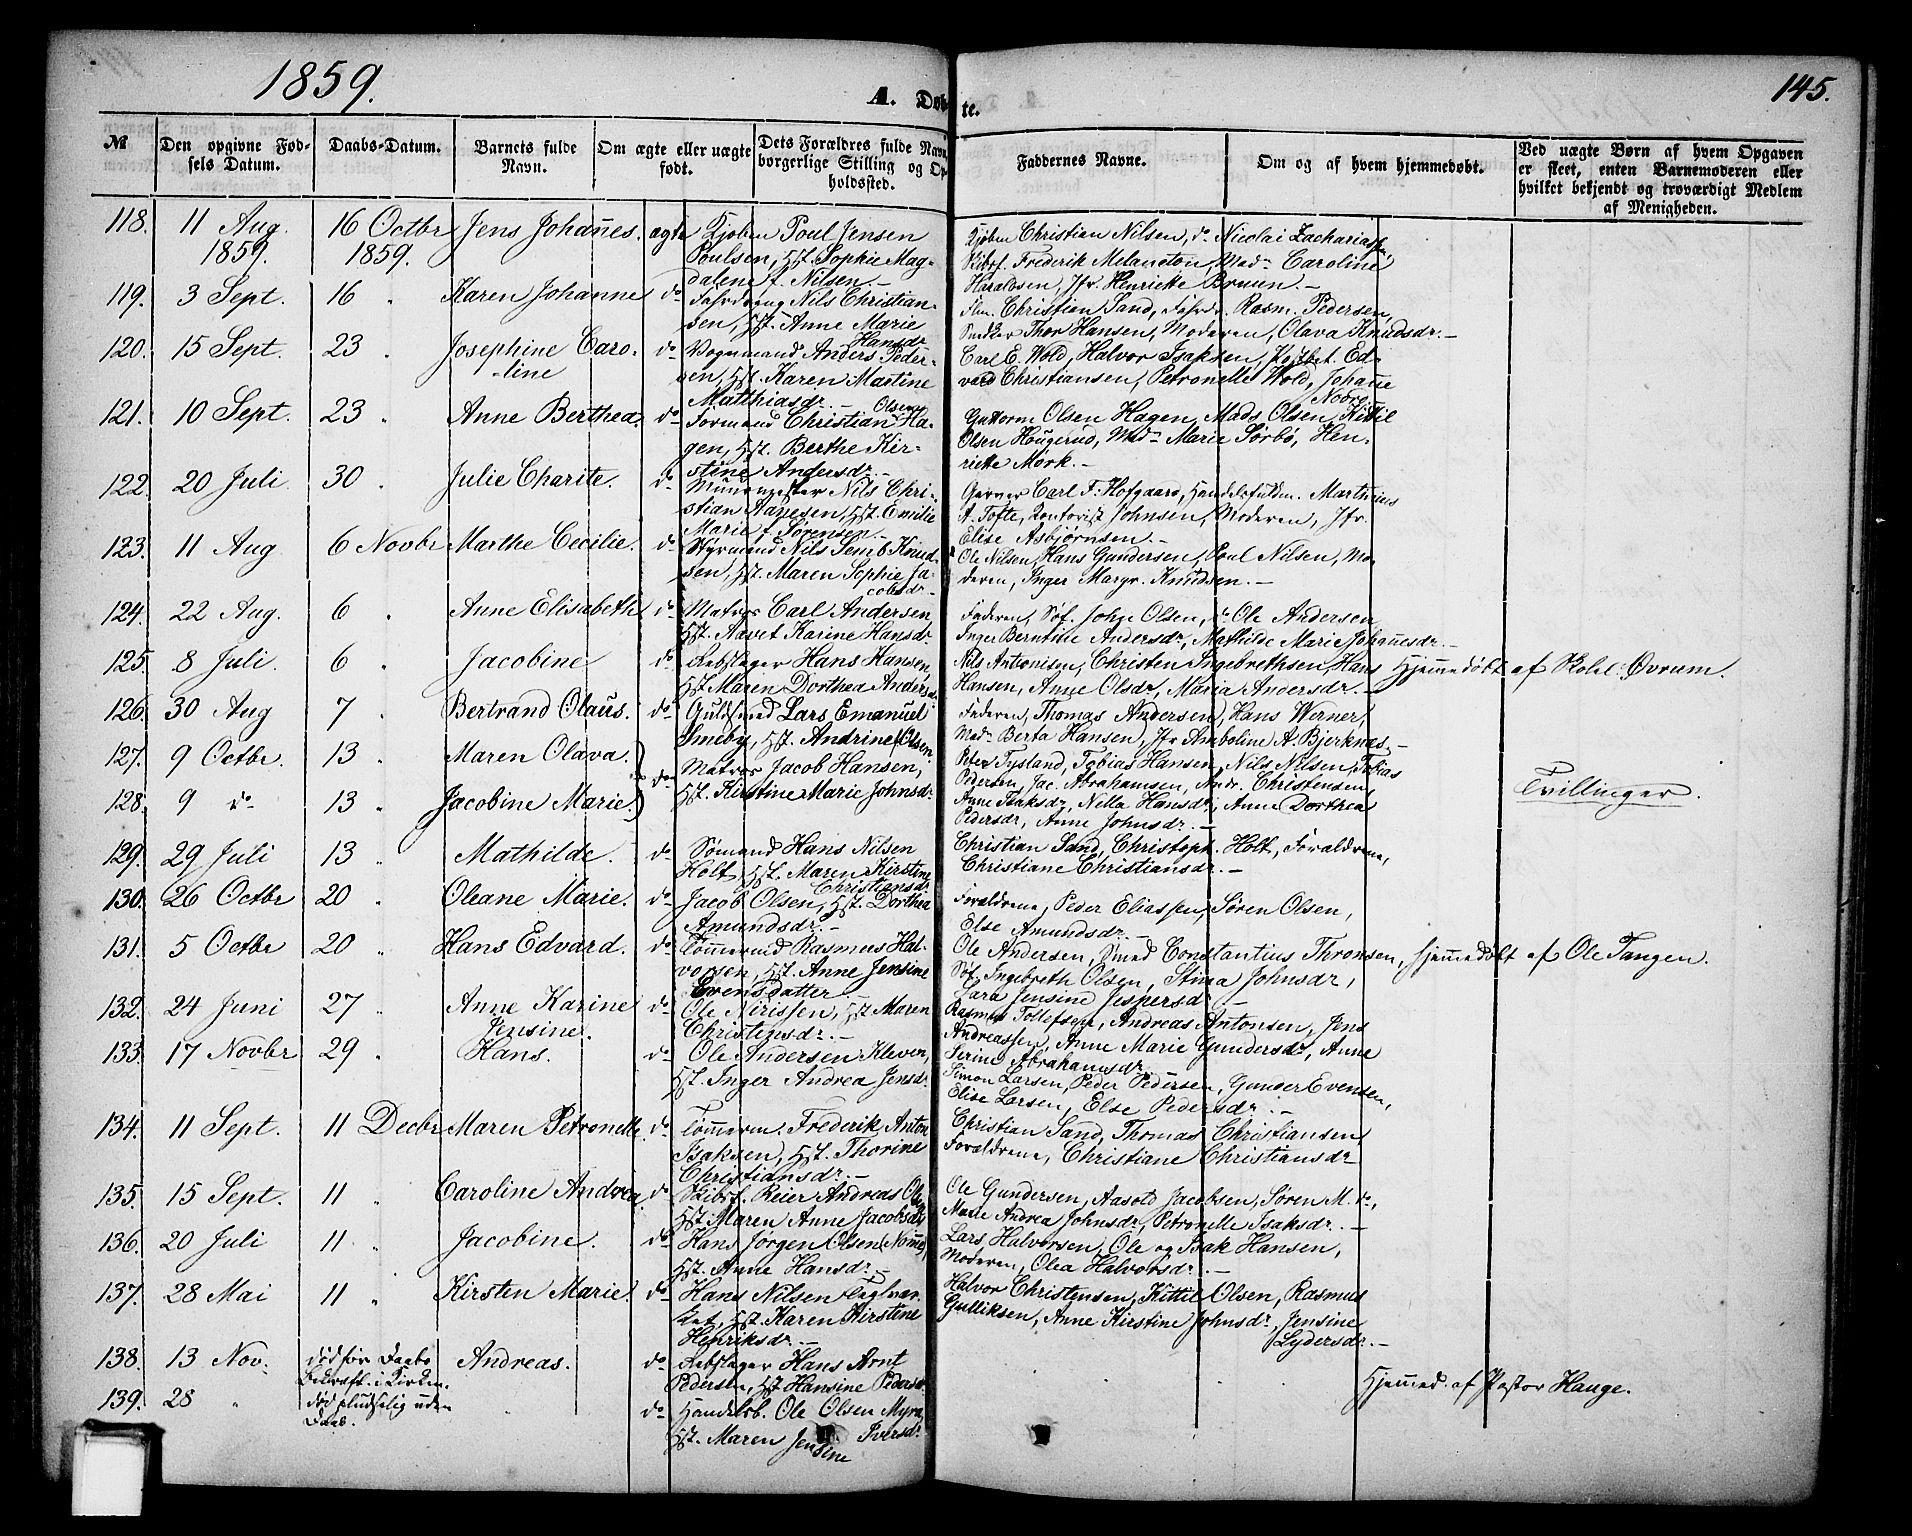 1859.
A. Døbte.
145.
№
Den opgivne Fødsels Datum.
Daabs-Datum.
Barnets fulde Navn.
Om ægte eller uægte født.
Dets Forældres fulde Navn, borgerlige Stilling og Opholdssted.
Faddernes Navne.
Om og af hvem hjemmedøbt.
Ved uægte Børn af hvem Opgaven er skeet, enten Barnemoderen eller hvilket bekjendt og troværdigt Medlem af Menigheden.
118. 11 Aug. 1859. 16 Octbr 1859. Jens Johañes. ægte Kjøbm Poul Jensen
Poulsen, Hst. Sophie Mag-
dalene f. Nilsen.-
Kjøbm Christian Nilsen, do Nicolai Zachariassen,
Skibsf. Frederik Melancton, Mad. Caroline
Haraldsen, Jfr. Henriette Bruun.-
119. 3 Sept. 16 " Karen Johanne do Nils Christian-
sen, Hst. Anne Marie
Hansdr
Christian Sand, Rasm. Pedersen,
Snedker Thor Hansen, Moderen, Olava Knudsdr.-
120. 15 Sept. 23 " Josephine Caro-
line do Vognmand Anders Peder-
sen, Hst. Karen Martine
Matthiasdr.-
Carl E. Wold, Halvor Isaksen, Ed-
vard Christiansen, Petronelle Wold, Johañe
121. 10 Sept. 23 " Anne Berthea. do Formand Christian Olsen Ha-
gen, Hst. Berthe Kir-
stine Andersdr.-
Guttorm Olsen Hagen, Mads Olsen, Kittil
Olsen Hougerud, Mad. Marie Sørbø, Hen-
riette Mørk.-
122. 20 Juli 30 " Julie Charite. do Nils Chri-
stian Hst. Emilie
Marie f. Sørensen.-
Garver Carl F. Hofgaard, Handelsfuldm. Marthinius
A. Tofte, Kontorist Johnsen, Moderen, Jfr.
Elise Asbjørnsen.-
123. 11 Aug 6 Novbr Marthe Cecilie. do Styrmand Nils Semb Knud-
sen, Hst. Maren Sophie Ja-
cobsdr-
Ole Nilsen, Hans Gundersen, Poul Nilsen, Mo-
deren, Inger Margr. Knudsen.-
124. 22 Aug. 6 " Anne Elisabeth do Matros Carl Andersen,
Hst. Karine Hansdr
Faderen, Søf. Johs Olsen, do Ole Andersen
Inger Berntine Andersdr, Mathilde Marie Johañesdr.-
125. 8 Juli. 6 " Jacobine do Rebslager Hans Hansen,
Hst Maren Dorthea Andersdr
Nils Antonisen, Christen Ingebrethsen, Hans
Hansen, Anne Olsdr, Maria Andersdr.-
Hjem̃edøbt af Skolel. Øvrum.
126. 30 Aug 7 " Bertrand Olaus. do Guldsmed Lars Emanuel
Smeby, Hst. Andrine Olsen
Faderen, Thomas Andersen, Hans Werner,
Mad. Berta Hansen, Jfr Amboline A. Bjerknæs.-
127. 9 Octbr. 13 " Maren Olava.
128. 9 do 13 " Jacobine Marie. do Matros Jacob Hansen,
Hst. Kirstine Marie Johnsdr
Peter Tysland, Tobias Hansen, Nils Nilsen, Tobias
Pedersen, Jac. Abrahamsen, Andr. Christensen,
Anne Isaksdr, Nilla Hansdr, Anne Dorthea
Pedersdr, Anne Johnsdr.-
Tvillinger.
129. 29 Juli 13 " Mathilde. do Sømand Hans Nilsen
Holt, Hst. Maren Kirstine
Christiansdr
Christian Sand, Christoph. Holt, Forældrene,
Christiane Christiansdr.-
130. 26 Octbr 20 " Oleane Marie. do Jacob Olsen, Hst. Dorthea
Amundsdr.-
Forældrene, Peder Eliassen, Søren Olsen,
Else Amundsdr.-
131. 5 Octbr 20 " Hans Edvard. do Tøm̃ermd Rasmus Hal-
vorsen, Hst. Anne Jensine
Evensdatter-
Ole Andersen, Smed Constantius Thronsen,
Søf. Ingebreth Olsen, Stina Johnsdr,
Lara Jensine Jespersdr-
Hjem̃edøbt af Ole Tangen.
132. 24 Juni 27 " Anne Karine
Jensine. do Ole Nirissen, Hst Maren
Christensdr.-
Rasmus Tollefsen, Andreas Antonsen, Jens
Andreassen, Anne Marie Gundersdr, Anne
Serine Abrahamsdr.
133. 17 Novbr 29 " Hans. do Ole Andersen Kleven,
Hst. Inger Andrea Jensdr
Simon Larsen, Peder Pedersen, Gunder Evensen,
Elise Larsen, Else Pedersdr.-
134. 11 Sept. 11 Decbr Maren Petronelle. do Tøm̃erm. Frederik Anton
Isaksen, Hst. Thorine
Christiansdr.-
Christian Sand, Thomas Christiansen
Forældrene, Christiane Christiansdr
135. 15 Sept. 11 " Caroline Andrea. do Skibsf. Reier Andreas
Hst. Maren Anne Jacobsdr
Ole Gundersen, Aasold Jacobsen, Søren M. do,
Marie Andrea Johnsdr, Petronelle Isaksdr.-
136. 20 Juli 11 " Jacobine. do Hans Jørgen Olsen
Hst. Anne Hansdr-
Lars Halvorsen, Ole og Isak Hansen,
Moderen, Olea Halvorsdr.-
137. 28 Mai 11 " Kirsten Marie. do Hans Nilsen Teglvær-
ket, Hst. Karen Kirstine
Henriksdr.-
Halvor Christensen, Kittil Olsen, Rasmus
Gulliksen, Anne Kirstine Johnsdr, Jensine
Lydersdr.-
138. 13 Nov. død før Daabs
Bekræft. i Kirken. Andreas. do Rebslager Hans Arnt
Pedersen, Hst Hansine Pedersdr
Hjem̃ed. af Pastor Hauge.
139. 28 " død pludselig uden
Daab. do Handelsb. Ole Olsen Myra,
Hst. Maren Jensine Iversdr